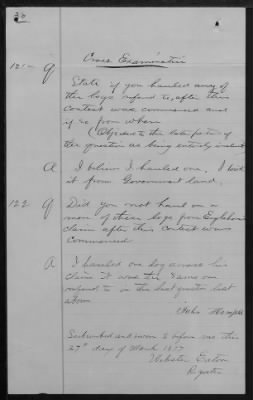 Cross Examination
121 - Q
State if you hauled any of
the logs referred to, after this
contest was commenced and
if so from where
(Objected to the latter portion of
the question as being entirely
A I believe I hauled one. I took
it from Government land.
122 Q Did you not haul one or
more of these logs from
claim after this contest was
commenced
A I hauled one log across his
claim It was the same one
referred to in the last question but
above
John
Subscribed and sworn to before me this
27th day of March
Webster Eaton
Register